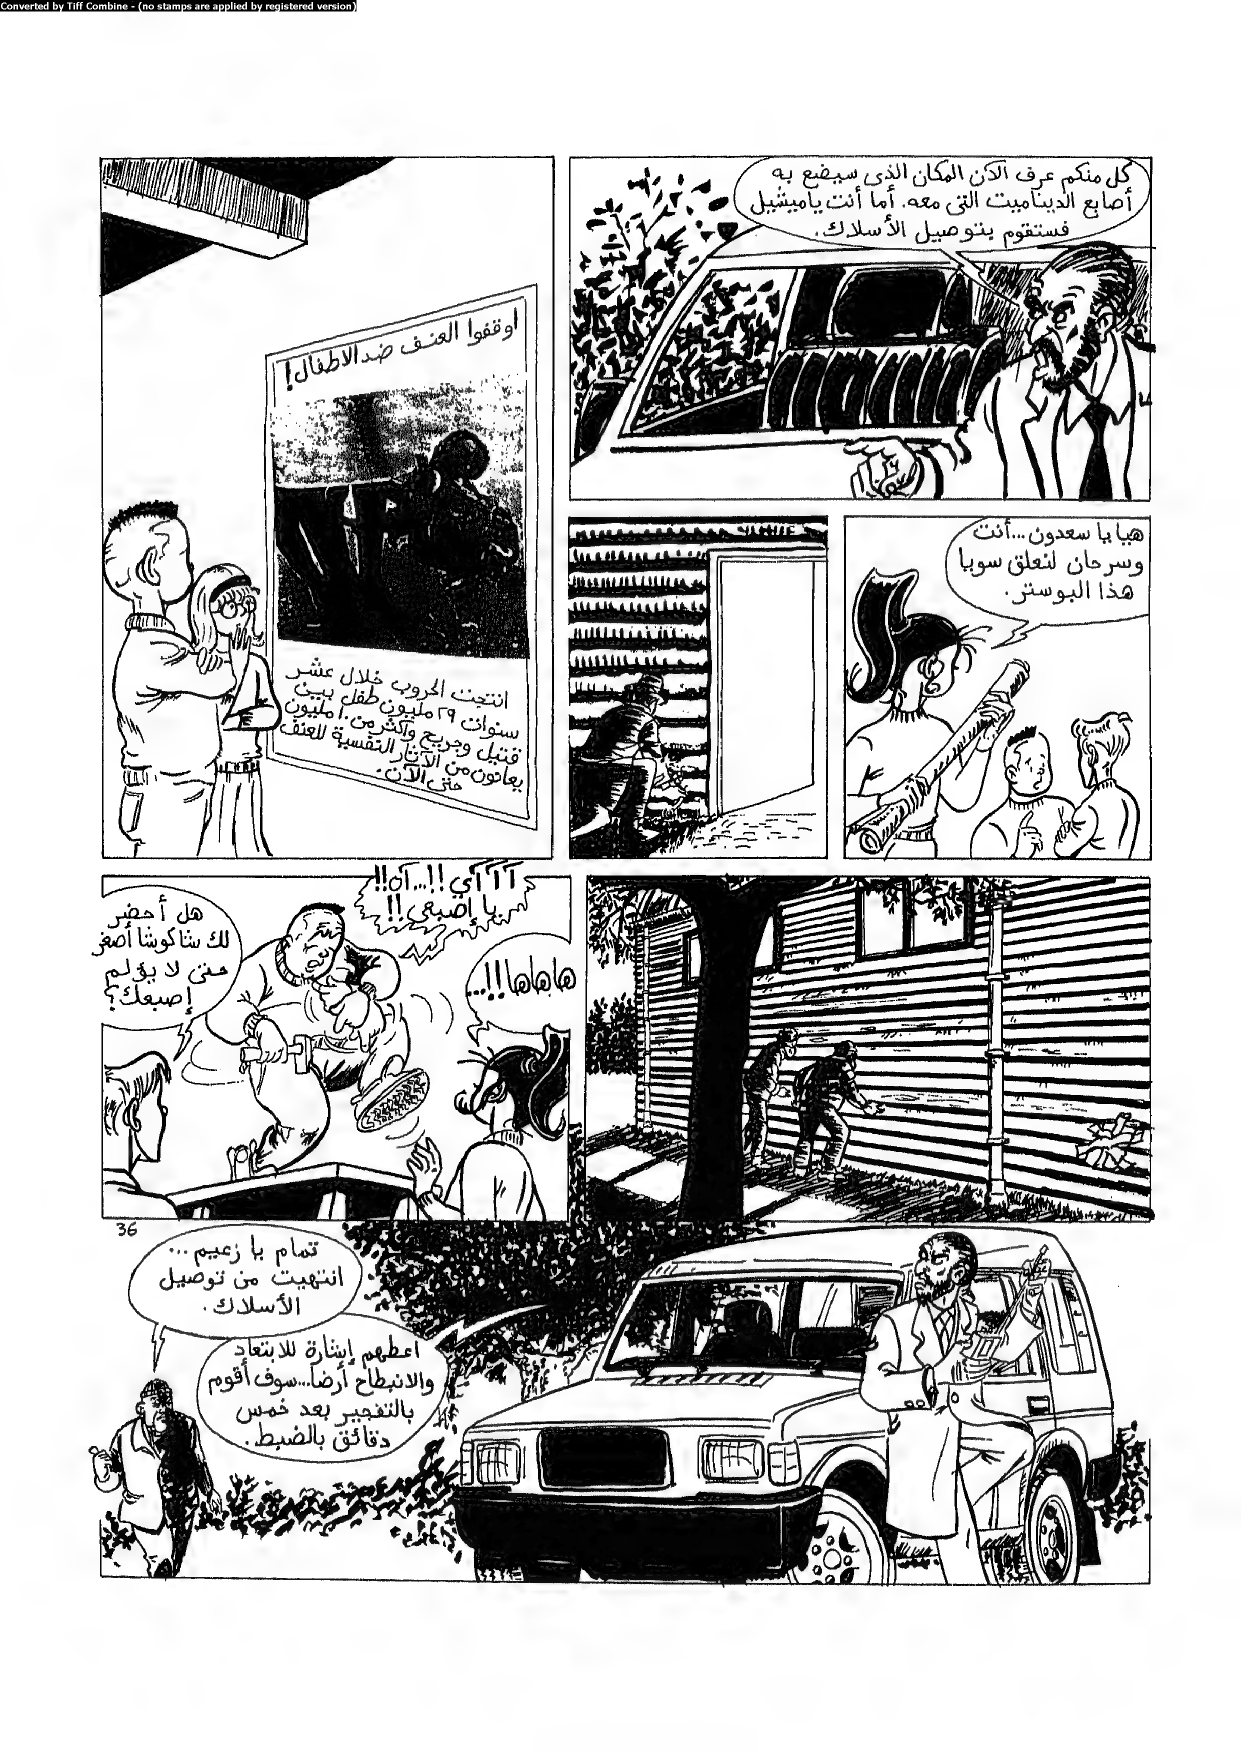 Converted by Tiff Combine - (no stamps are applied by registered version)
كل منكم عرف الآن المكان الذى سيضع به
أصابع الديناميت التى معه. أما أنت ياميشيل
فستقوم بتوصيل الأسلاك.
اوقفوا العنف ضد الاطفال!
انتجت الحروب خلال عشر
سنوات ٢٩ مليون طفل بين
قتيل وجريح وأكثر من ١٠ مليون
يعانون من الآثار النفسية للعنف
حتى الآن.
هيا يا سعدون...أنت
وسرحان لتعلق سويا
هذا البوستر.
آآآآي!!...آه!!
يا إصبعي!!
هاهاها!!...
هل أحضر
لك شاكوشا أصغر
حتى لا يؤلم
إصبعك؟
36
تمام يا زعيم...
انتهيت من توصيل
الأسلاك.
اعطهم إشارة للابتعاد
والانبطاح أرضا...سوف أقوم
بالتفجير بعد خمس
دقائق بالضبط.